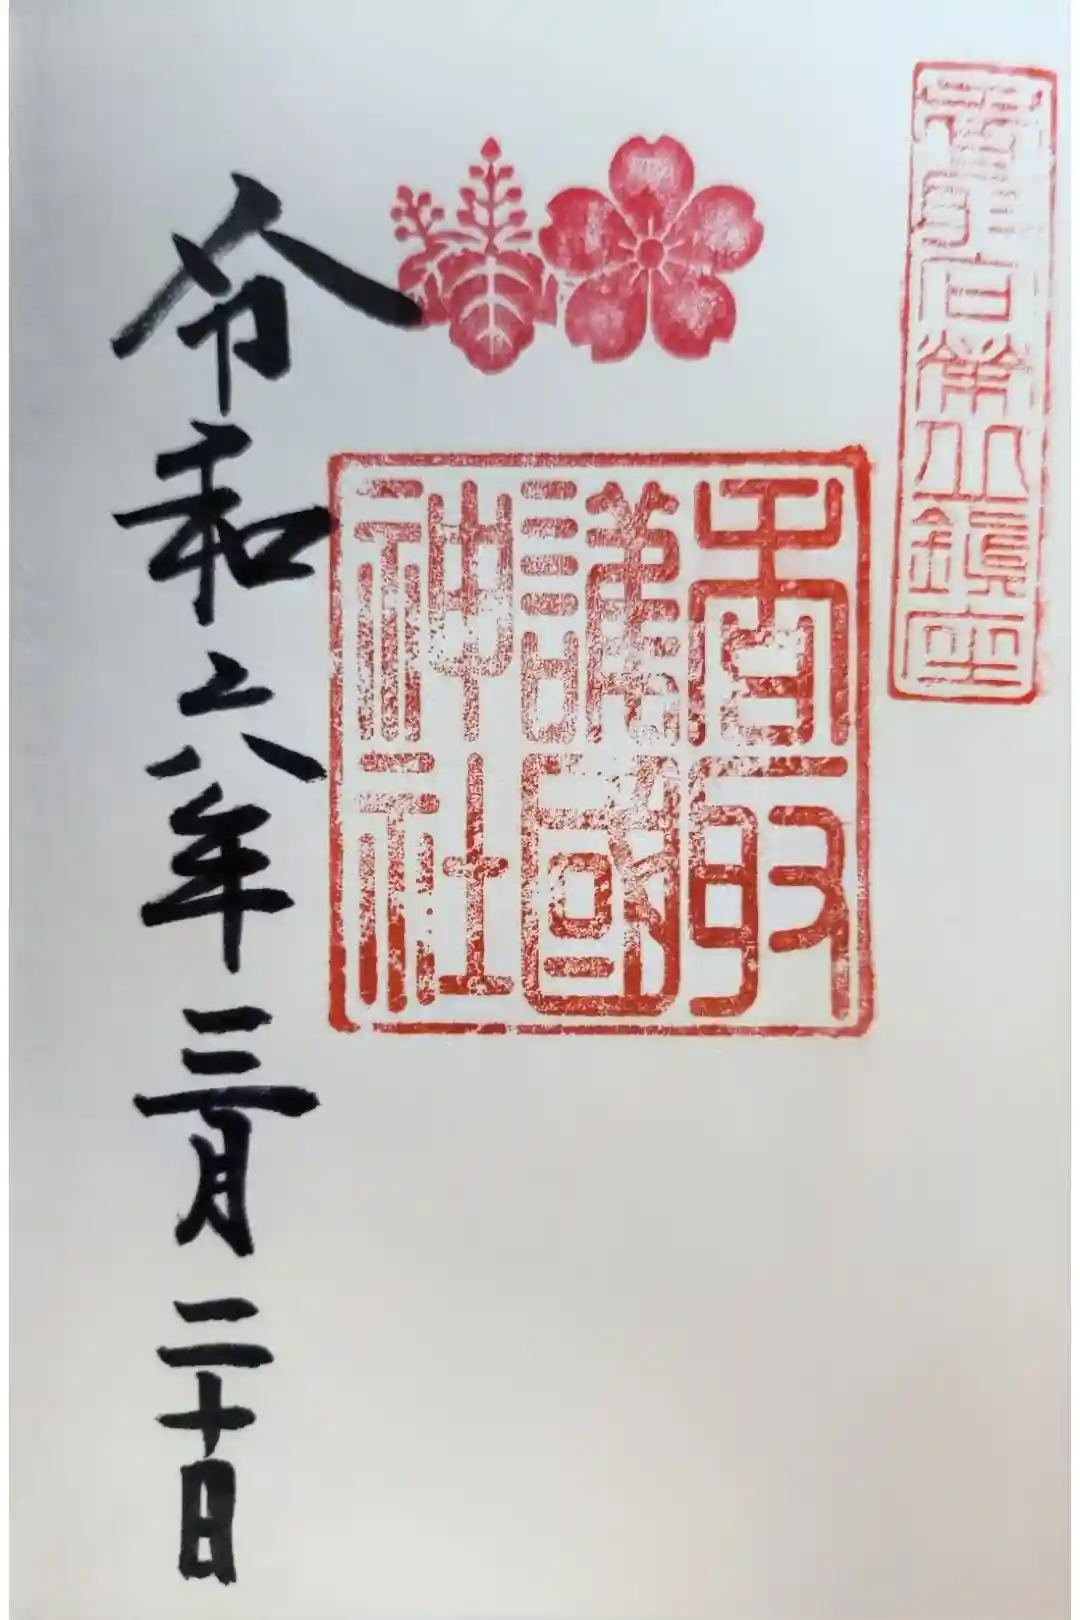 香取
護國
神社
令和六年三月二十日